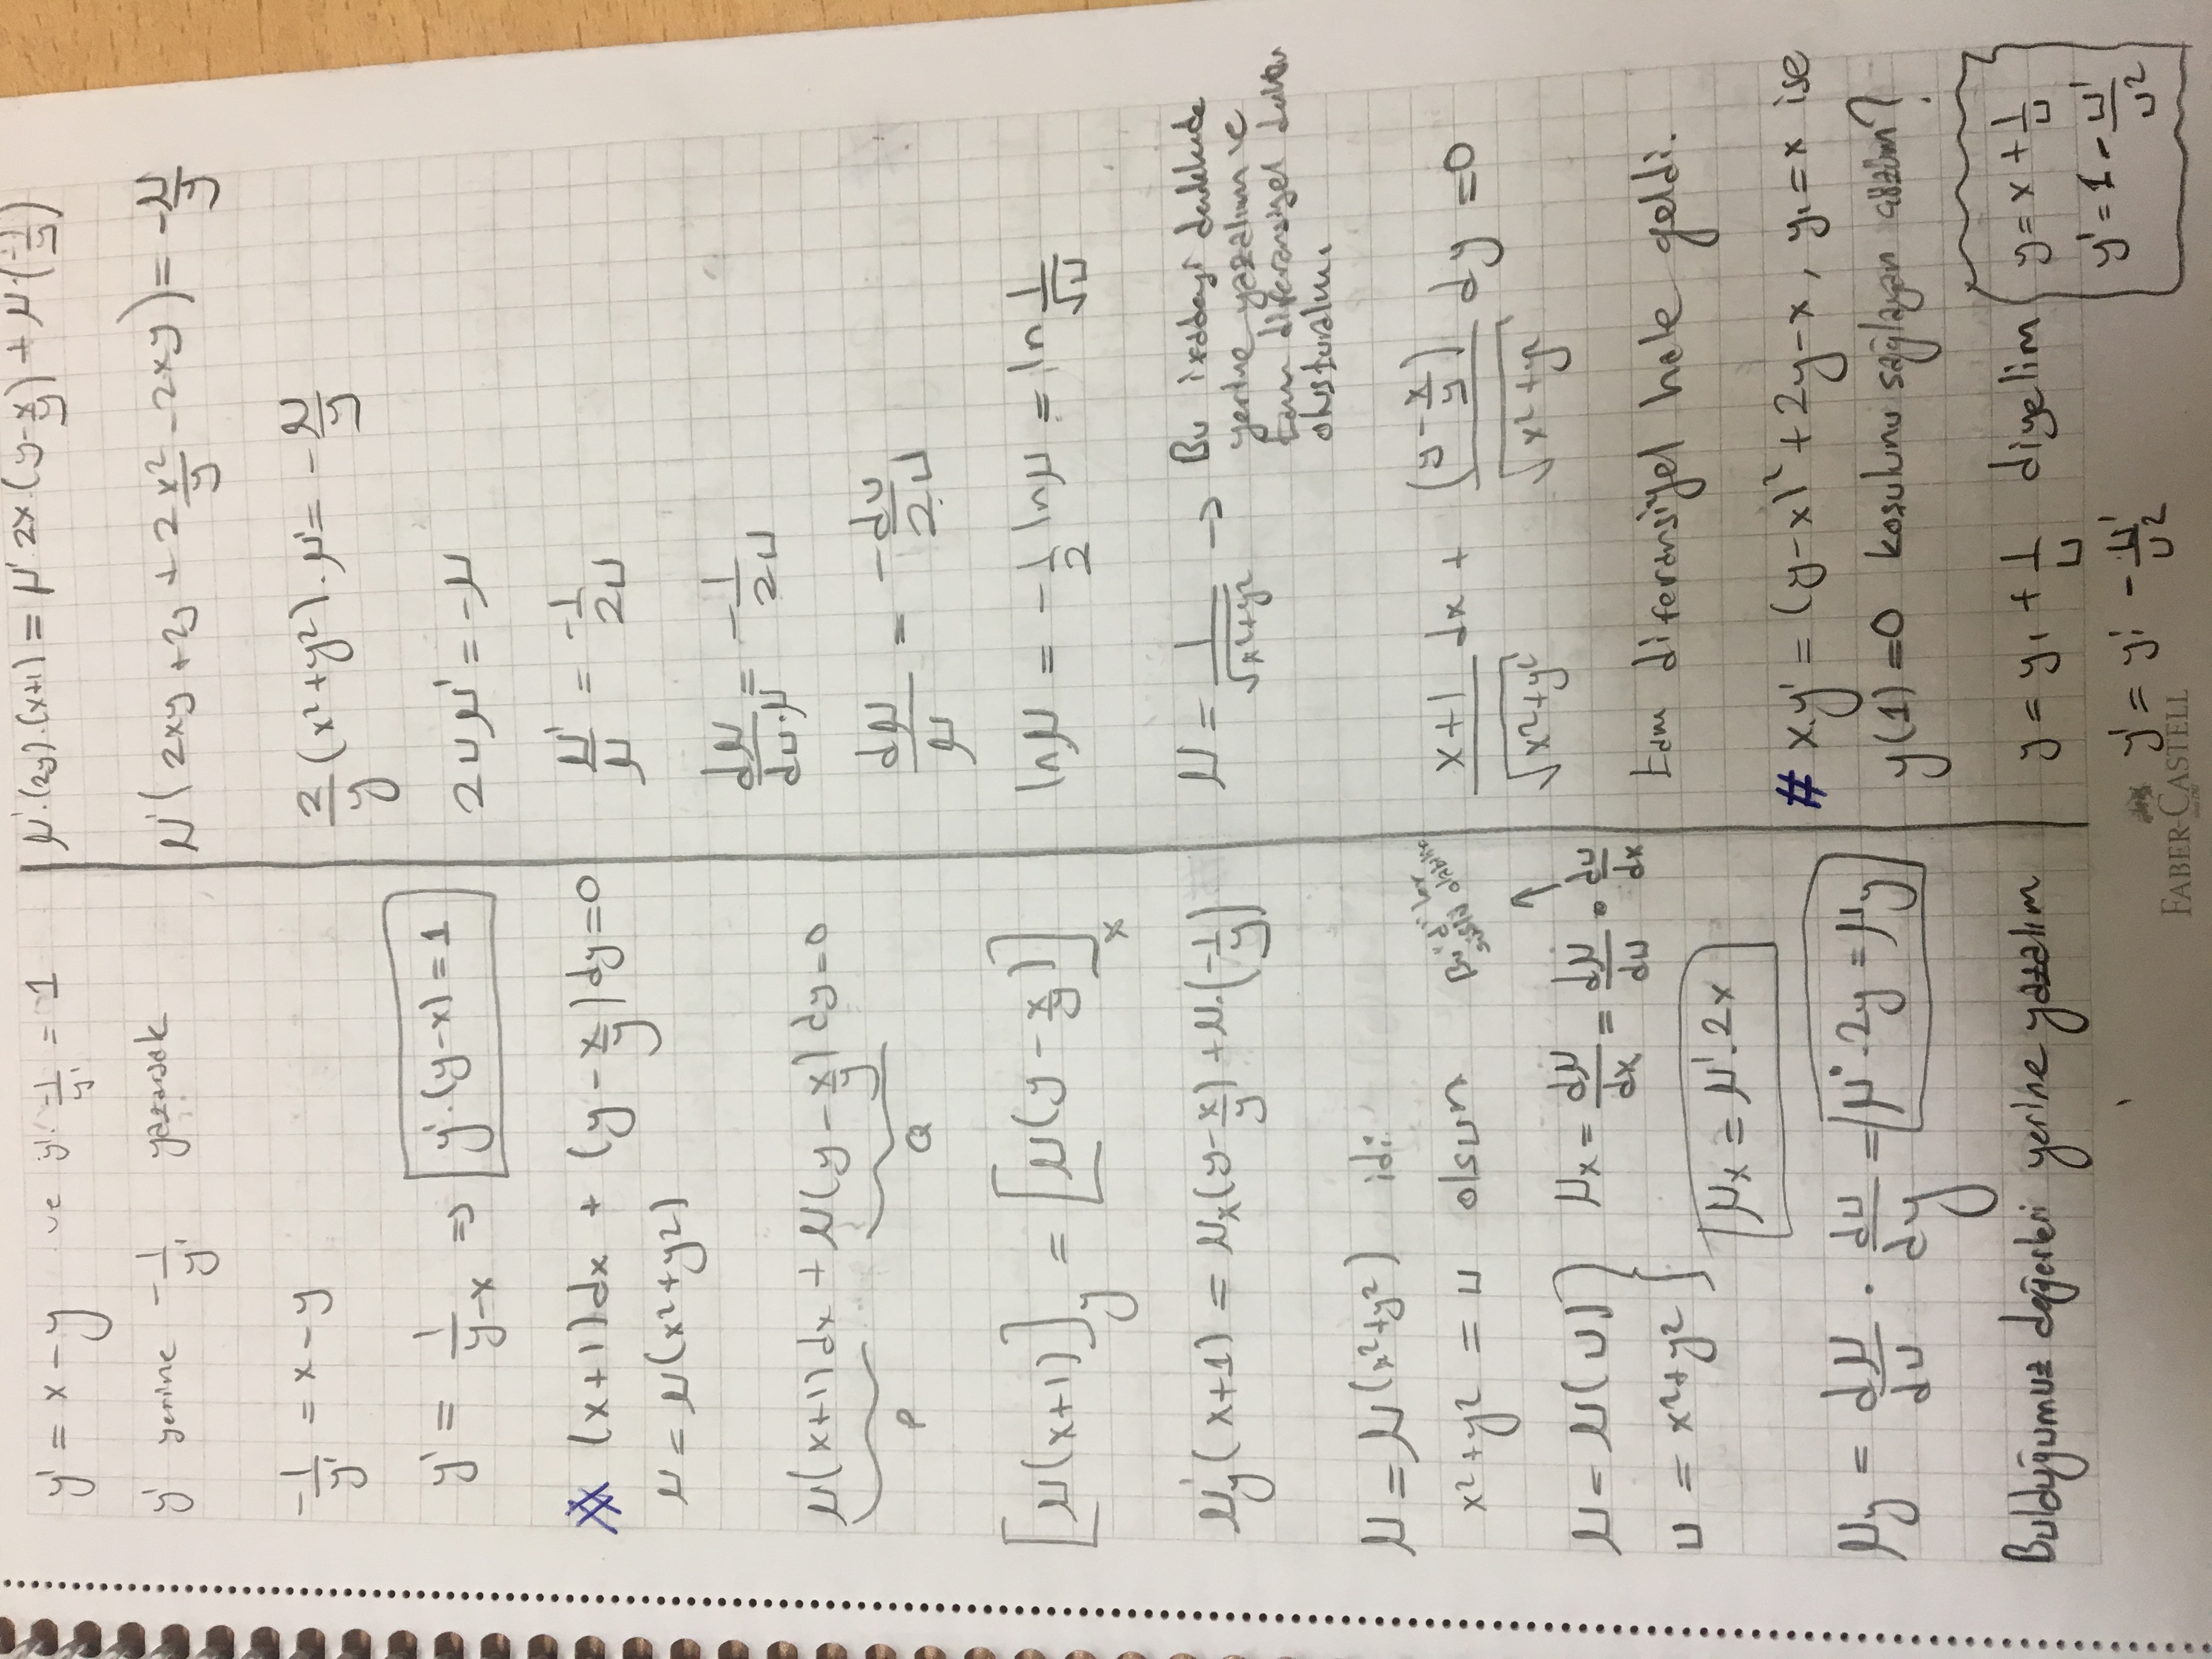 y' = x - y ve y'. -1/y' = 1
y' yerine -1/y' yazarsak
-1/y' = x - y
y' = 1/(y-x) => y'.(y-x) = 1
# (x+1)dx + (y - x/y)dy = 0
μ = μ(x²+y²)
μ(x+1)dx + μ(y - x/y)dy = 0
P Q
[μ(x+1)]y = [μ(y - x/y)]x
μy'(x+1) = μx(y - x/y) + μ.(-1/y)
μ = μ(x²+y²) idi
x²+y² = u olsun
Bu "d" ler
olabilir
μ = μ(u)
u = x²+y²
μx = dμ/dx = dμ/du . du/dx
μx = μ'.2x
μy = dμ/du . du/dy = μ'.2y = μy
Bulduğumuz değerleri yerine yazalım
μ'.(2y).(x+1) = μ'.2x.(y - x/y) + μ.(-1/y)
μ'(2xy + 2y + 2x²/y - 2xy) = -μ/y
2/y (x²+y²).μ' = -μ/y
2uμ' = -μ
μ'/μ = -1/2u
dμ/du.μ = -1/2u
dμ/μ = -du/2u
lnμ = -1/2 lnμ = ln 1/√u
μ = 1/√(x²+y²) → Bu ifadeyi denklemde
yerine yazalım ve
tam diferansiyel
oluşturalım.
(x+1)/√(x²+y²) dx + (y - x/y)/√(x²+y²) dy = 0
tam diferansiyel hale geldi.
# x.y' = (y-x)² + 2y - x, y₁ = x ise
y(1) = 0 koşulunu sağlayan çözüm?
y = y₁ + 1/u diyelim
y' = y₁' - u'/u²
y = x + 1/u
y' = 1 - u'/u²
FABER-CASTELL